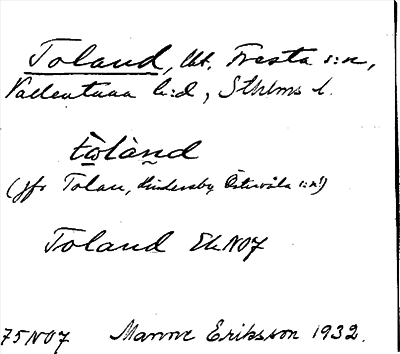 Toland, Ut. Fresta s:n,
Vallentuna h:d, Sthlms l.
tòlànd
(jfr Tolan, Hindersby, Östervåla s:n!)
Toland Ek N07
75N07 Manne Eriksson 1932.